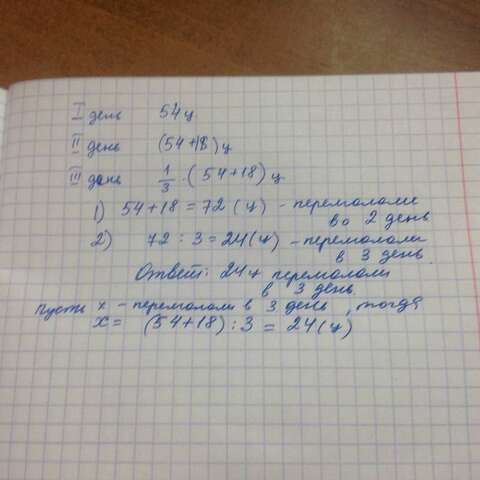 I день 54ц
II день (54+18)ц
III день 1/3 · (54+18)ц
1) 54+18=72(ц) - перемололи
во 2 день
2) 72:3=24(ц) - перемололи
в 3 день.
Ответ: 24ц перемололи
в 3 день
Пусть х - перемололи в 3 день, тогда
х= (54+18):3 = 24(ц)